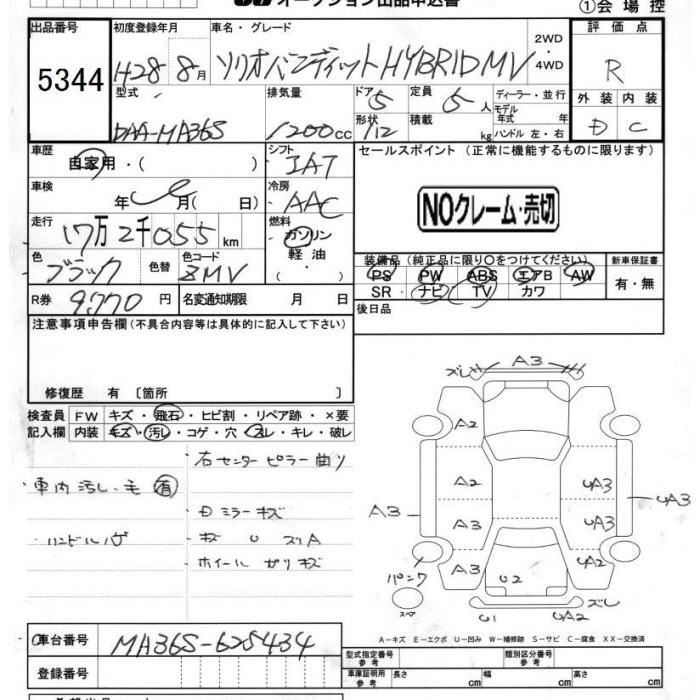 オークション出品申込書
①会場控
出品番号
5344
初度登録年月
H28 8月
車名・グレード
ソリオバンディット HYBRID MV
2WD
・
4WD
評価点
R
型式
DAA-MA36S
排気量
1200cc
ドア
5
形状
/12
定員
5人
積載
kg
ディーラー・並行
モデル
年式 年
ハンドル 左・右
外装 内装
D C
車歴
自家用・( )
シフト
IAT
セールスポイント (正常に機能するものに限ります)
車検
年 月( 日)
冷房
AAC
NOクレーム・売切
走行
17万2千055km
燃料
ガソリン
軽油
・( )
色
ブラック
色替
色コード
ZMV
装備品(純正品に限り○をつけてください)
PS PW ABS エアB AW
SR ナビ TV カワ
新車保証書
有・無
R券
9770円
名変通知期限 月 日
後日品
注意事項申告欄(不具合内容等は具体的に記入して下さい)
修復歴 有 〔箇所 〕
検査員 FW キズ・飛石・ヒビ割・リペア跡・×要
記入欄 内装 キズ・汚レ・コゲ・穴・スレ・キレ・破レ
右センターピラー曲り
・車内汚レ・毛 有
・Dミラーキズ
・ハンドルハゲ
・キズ U ズリA
・ホイールガリキズ
ズレ A3
A2
A2 UA3
A3 A3 UA3 UA3
A3 U2 A2
パンク
スペア
U1 UA2 ズレ
A-キズ E-エクボ U-凹み W-補修跡 S-サビ C-腐食 XX-交換済
車台番号
MA36S-625434
登録番号
型式指定番号
参考
類別区分番号
参考
車庫証明用
参考
長さ cm
幅 cm
高さ cm